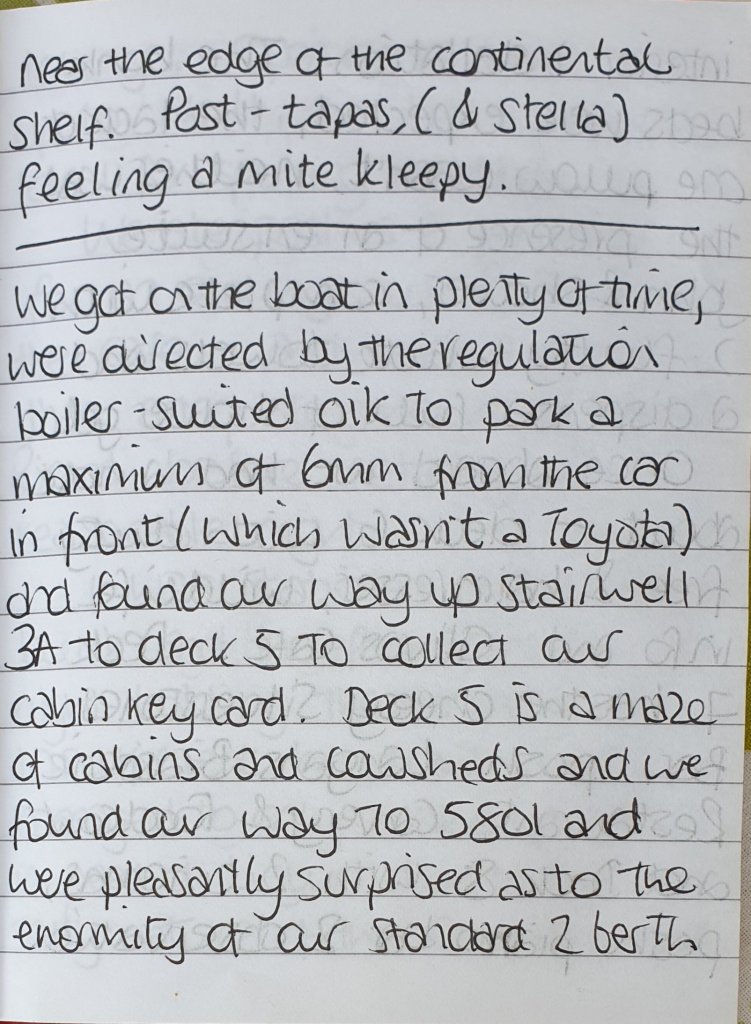 near the edge of the continental
shelf. Post-tapas, (& Stella)
feeling a mite kleepy.
We got on the boat in plenty of time,
were directed by the regulation
boiler-suited oik to park a
maximum of 6mm from the car
in front (which wasn't a Toyota)
and found our way up stairwell
3A to deck 5 to collect our
cabin key card. Deck 5 is a maze
of cabins and cowsheds and we
found our way to 5801 and
were pleasantly surprised as to the
enormity of our standard 2 berth